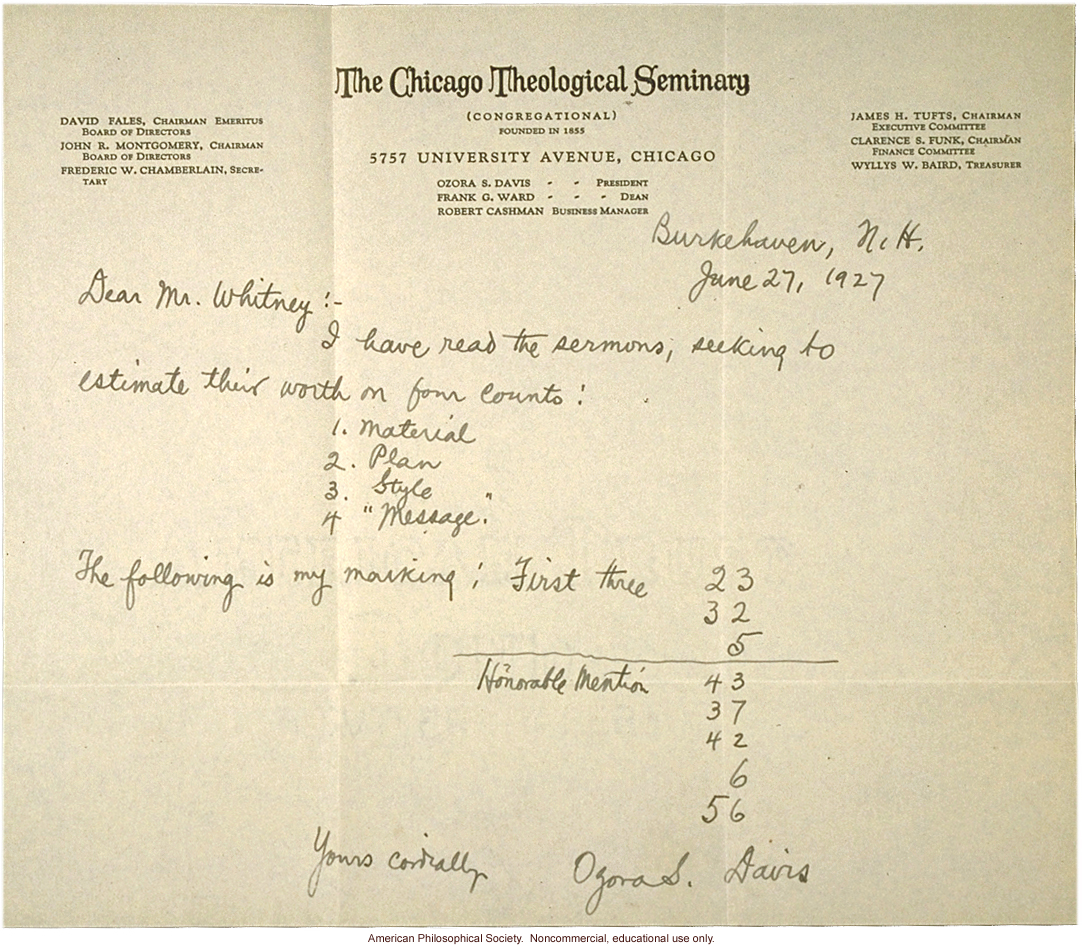 The Chicago Theological Seminary
(CONGREGATIONAL)
FOUNDED IN 1855
5757 UNIVERSITY AVENUE, CHICAGO
DAVID FALES, CHAIRMAN EMERITUS
BOARD OF DIRECTORS
JOHN R. MONTGOMERY, CHAIRMAN
BOARD OF DIRECTORS
FREDERIC W. CHAMBERLAIN, SECRE-
TARY
OZORA S. DAVIS - - PRESIDENT
FRANK G. WARD - - - DEAN
ROBERT CASHMAN BUSINESS MANAGER
JAMES H. TUFTS, CHAIRMAN
EXECUTIVE COMMITTEE
CLARENCE S. FUNK, CHAIRMAN
FINANCE COMMITTEE
WYLLYS W. BAIRD, TREASURER
Burkehaven, N.H.
June 27, 1927
Dear Mr. Whitney:-
I have read the sermons, seeking to
estimate their worth on four counts:
1. Material
2. Plan
3. Style
4 "Message."
The following is my marking: First three 23
32
5
Honorable Mention 43
37
42
6
56
Yours cordially
Ozora S. Davis
American Philosophical Society. Noncommercial, educational use only.